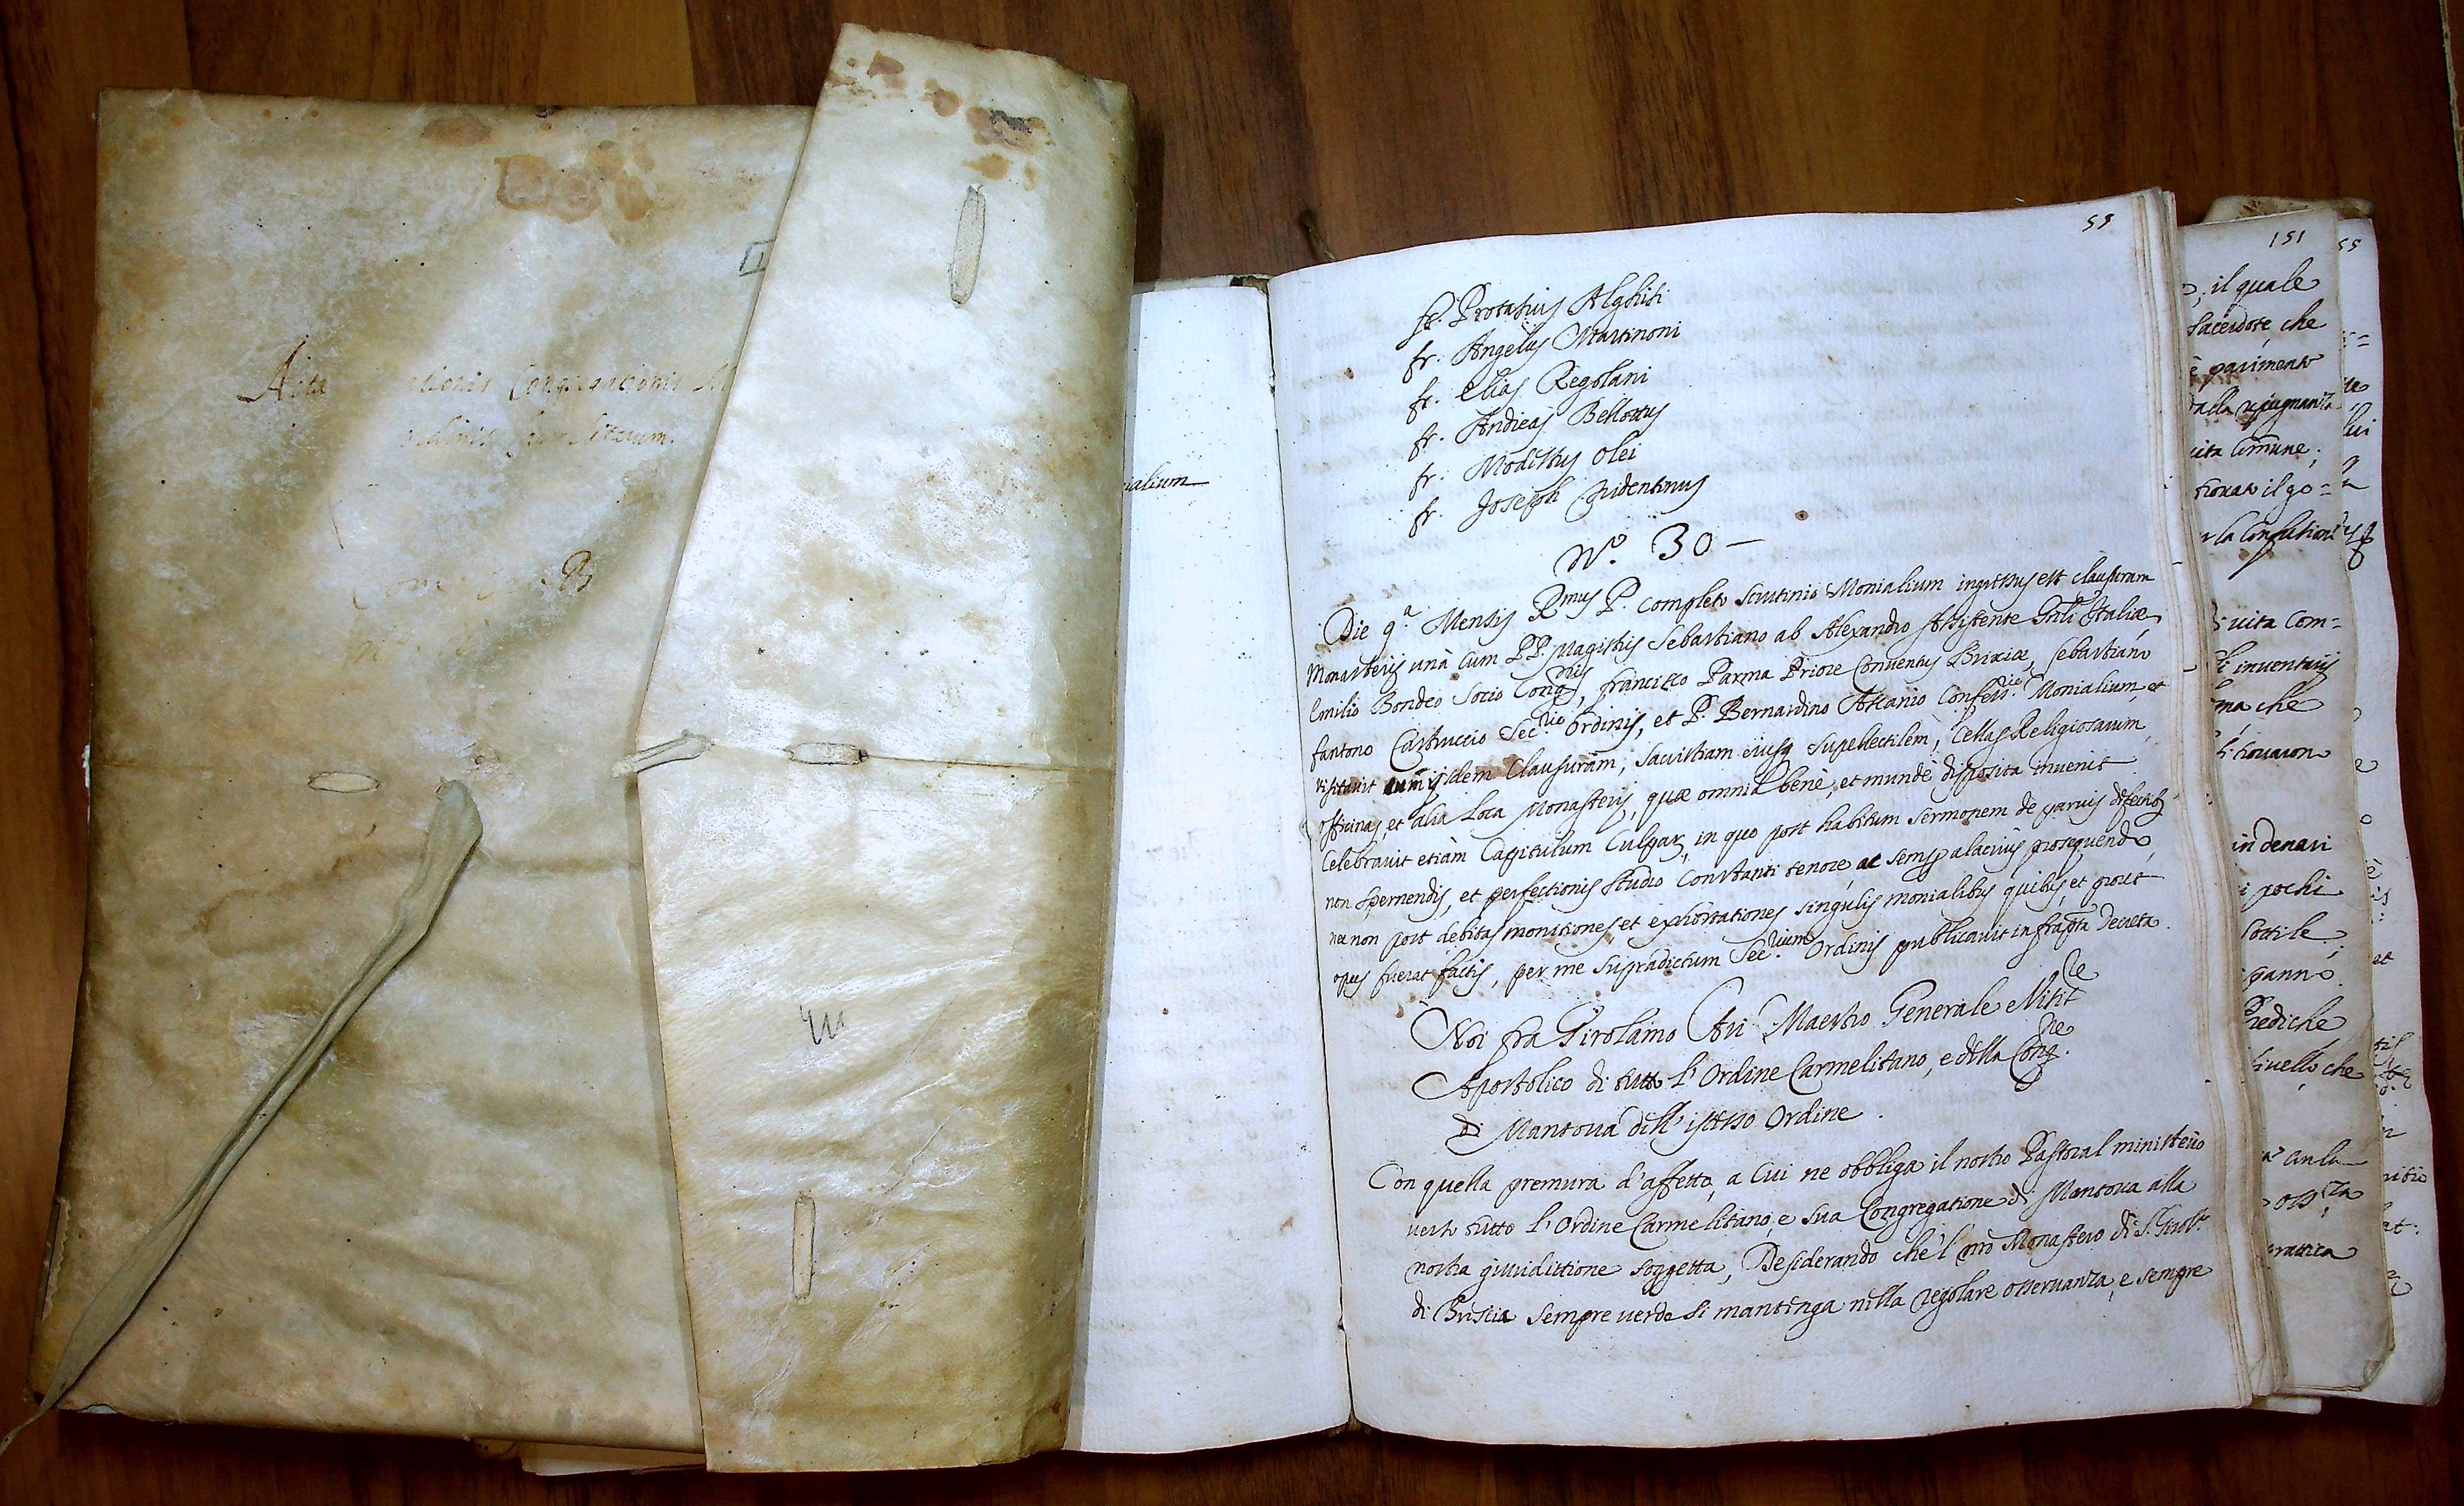 Acta
Congregationis
59
fr. Protasius Alghisi
fr. Angelus Martinoni
fr. Elias Regolani
fr. Andreas Bellottus
fr. Modestus Olei
fr. Joseph Cridentinus
N.º 30 —
Die 9.ª Mensis Rmus P. completo scrutinio Monialium ingressus est clausuram
Monasterij unà cum PP. Magistris Sebastiano ab Alexandro Assistente Gnli Italiæ,
Emilio Bondeo Socio Congnis, francisco Parma Priore Conventus Brixiæ, Sebastiano
fantono Castruccio Sec.rio Ordinis, et P. Bernardino Ascanio Confess. Monialium, et
visitavit eiusdem Clausuram, Sacristiam eiusq supellectilem, Cellas Religiosarum,
officinas et alia Loca Monasterij, quæ omnia benè, et mundè disposita invenit
Celebravit etiàm Capitulum Culpar, in quo post habitum sermonem de parvis defectibq
non spernendis, et perfectionis studio constanti tenore, ac semp alacrius prosequendo,
nec non post debitas monitiones, et exhortationes singulis monialibus quibus, et prout
opus fuerat factis, per me supradictum Sec.rium Ordinis publicavit infrapta decreta.
Noi fra Girolamo Ari Maestro Generale e Visitre
Apostolico di tutto l'Ordine Carmelitano, e della Cong.ne
di Mantova dell'istesso Ordine.
Con quella premura d'affetto, a cui ne obbliga il nostro Pastoral ministerio
verso tutto l'Ordine Carmelitano, e sua Congregatione di Mantova alla
nostra giurisdittione soggetta, Desiderando che'l nro Monastero di S. Girol.º
di Brescia sempre verde si mantenga nella regolare osservanza, e sempre
ialium
151
55
, il quale
sacerdote che
è pavimento
dalla repugnanza
vita comune;
il go=
vita com=
inventarij
ma che
trovaron
in denari
i pochi
sottile
panno.
Prediche
livello che
prattica